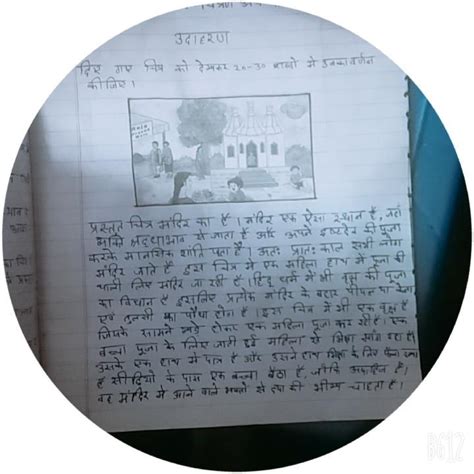 उदाहरण
दिए गए चित्र को देखकर 20-30 शब्दों में उनका वर्णन
कीजिए।
प्रस्तुत चित्र मंदिर का है। मंदिर एक ऐसा स्थान है, जहाँ
व्यक्ति श्रद्धाभाव से जाता है और अपने इष्टदेव की पूजा
करके मानसिक शांति पाता है। अतः प्रातः काल सभी लोग
मंदिर जाते हैं इस चित्र में एक महिला हाथ में पूजा की
थाली लिए मंदिर जा रही है। हिंदू धर्म में भी वृक्ष की पूजा
का विधान है इसलिए प्रत्येक मंदिर के बहार पीपल या केला
एवं तुलसी का पौधा होगा है। इस चित्र में भी एक वृक्ष है
जिसके सामने खड़े होकर एक महिला पूजा कर रही है। एक
बच्चा पूजा के लिए जाती हुई महिला से भिक्षा मांग रहा है।
उसके एक हाथ में पात्र है और उसने हाथ भिक्षा के लिए फैला रखा
है सीढ़ियों के पास एक बच्चा बैठा है, जोकि अपाहिज है।
वह मंदिर में आने वाले भक्तों से दया की भीख चाहता है।
B612